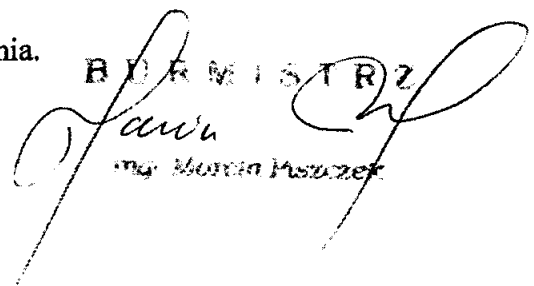 nia.
BURMISTRZ
mgr Marcin Piszczek